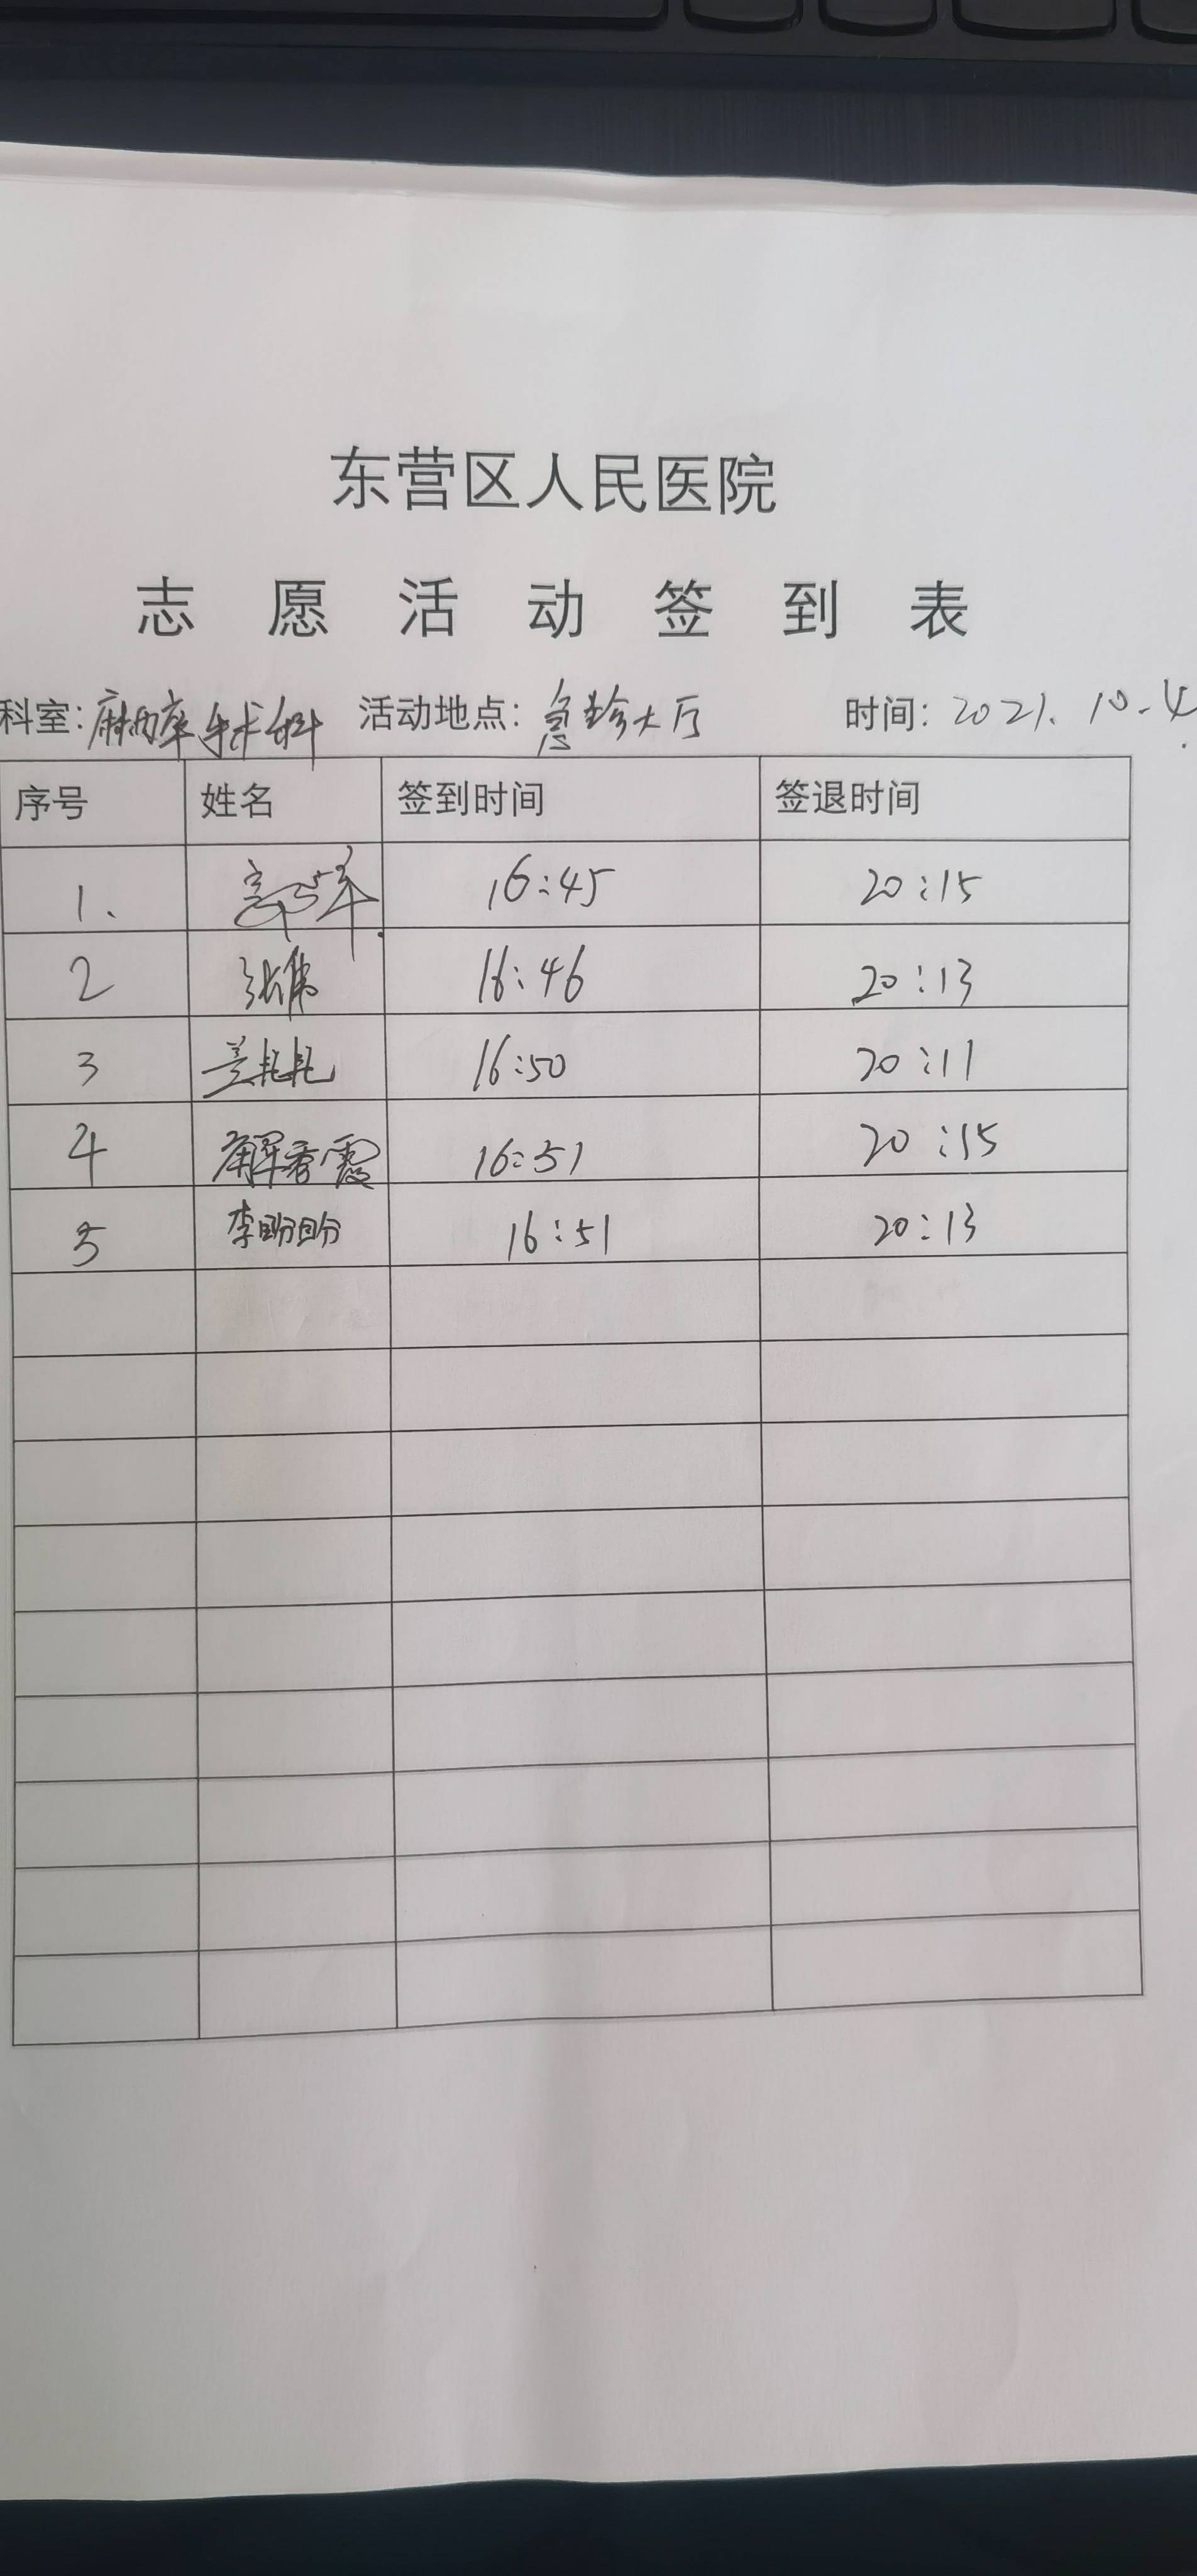 东营区人民医院
志愿活动签到表
科室:麻醉手术科 活动地点:急诊大厅 时间:2021.10.4
序号 姓名 签到时间 签退时间
1、 16:45 20:15
2 张伟 16:46 20:13
3 16:50 20:11
4 解春霞 16:51 20:15
5 李盼盼 16:51 20:13